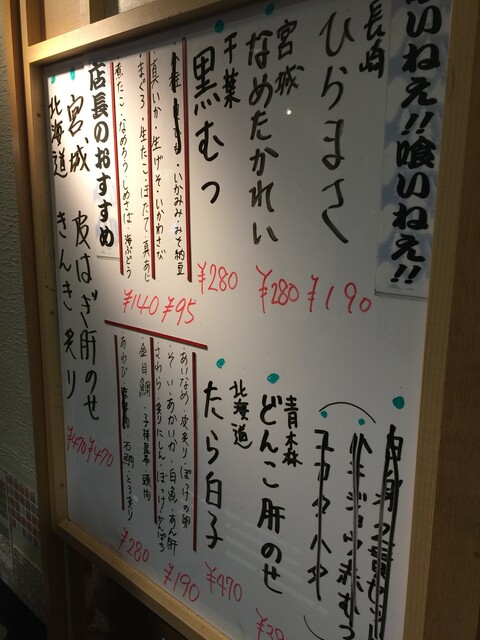 いねえ!!喰いねえ!!
長崎
ひらまさ
¥190
宮城
なめたかれい
¥280
千葉
黒むつ
¥280
いかみみ・みそ納豆
真いか・生げそ・いかわさび
¥95
まぐろ・生たこ・ほたて・真あじ
煮たこ・なめろう・しめさば・海ぶどう
¥140
店長のおすすめ
宮城 皮はぎ肝のせ
¥470
北海道 きんき炙り
¥470
青木森
どんこ肝のせ
北海道
たら白子
¥470
あいなめ・皮炙り・ぼたての卵
そい・あかいか・白魚・あん肝
さわら・炙りにしん・ほっけ・かんぱち
¥190
金目鯛・子持昆布・頭肉
あわび・石鯛・とろ炙り
¥280